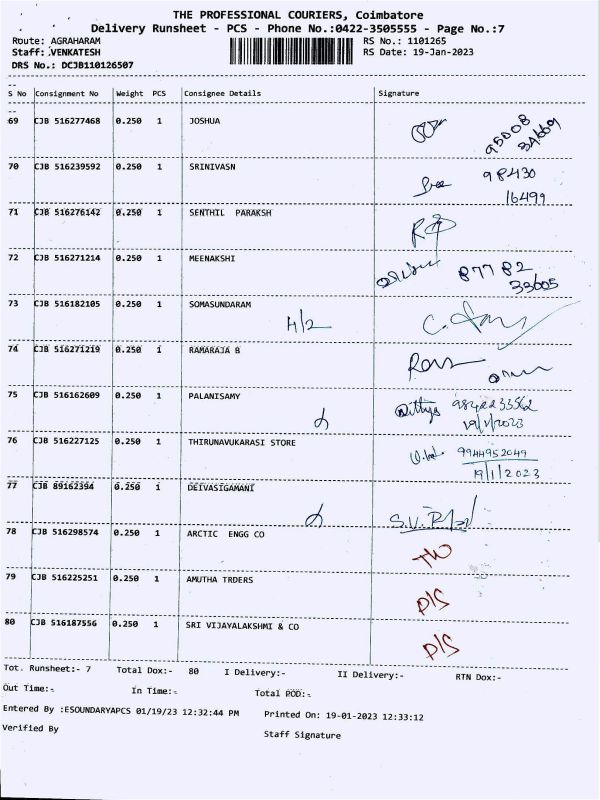 THE PROFESSIONAL COURIERS, Coimbatore
Delivery Runsheet - PCS - Phone No.:0422-3505555 - Page No.:7
Route: AGRAHARAM
RS No.: 1101265
Staff: VENKATESH
RS Date: 19-Jan-2023
DRS No.: DCJB110126507
S No Consignment No Weight PCS Consignee Details Signature
69 CJB 516277468 0.250 1 JOSHUA
70 CJB 516239592 0.250 1 SRINIVASN 98430
16499
71 CJB 516276142 0.250 1 SENTHIL PARAKSH
72 CJB 516271214 0.250 1 MEENAKSHI 87782
33605
73 CJB 516182105 0.250 1 SOMASUNDARAM
H/2
74 CJB 516271219 0.250 1 RAMARAJA B
75 CJB 516162609 0.250 1 PALANISAMY
19/1/2023
76 CJB 516227125 0.250 1 THIRUNAVUKARASI STORE 9944952049
19/1/2023
77 CJB 89162394 0.250 1 DEIVASIGAMANI
78 CJB 516298574 0.250 1 ARCTIC ENGG CO
79 CJB 516225251 0.250 1 AMUTHA TRDERS D/S
80 CJB 516187556 0.250 1 SRI VIJAYALAKSHMI & CO D/S
Tot. Runsheet:- 7 Total Dox:- 80 I Delivery:- II Delivery:- RTN Dox:-
Out Time:- In Time:- Total POD:-
Entered By :ESOUNDARYAPCS 01/19/23 12:32:44 PM Printed On: 19-01-2023 12:33:12
Verified By Staff Signature